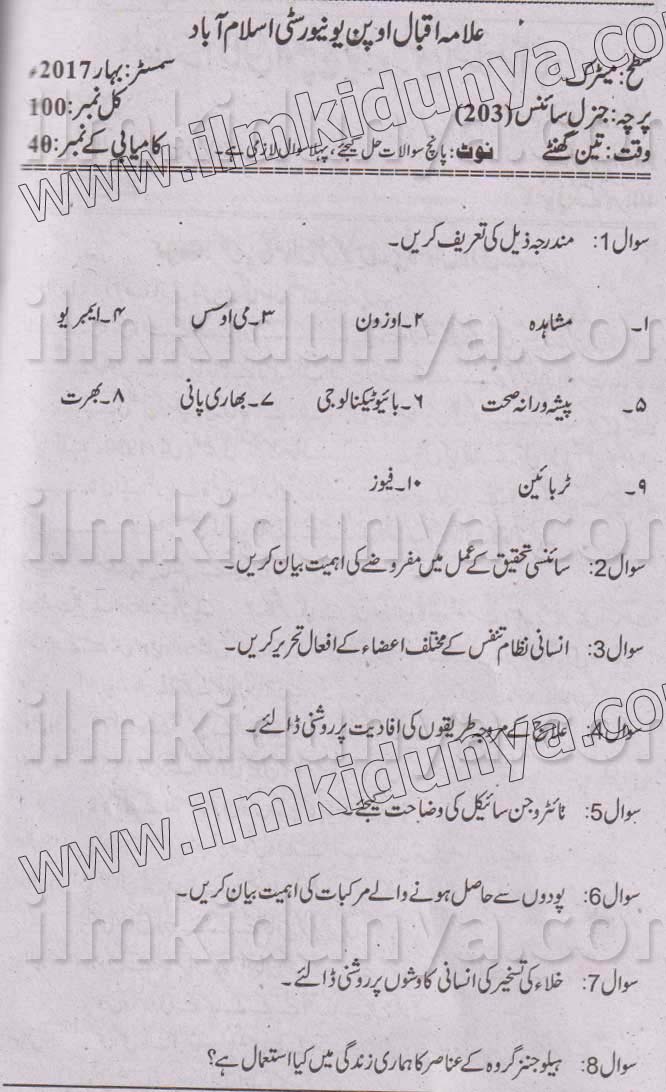 علامہ اقبال اوپن یونیورسٹی اسلام آباد
سطح: میٹرک سمسٹر: بہار 2017ء
پرچہ: جنرل سائنس (203) کل نمبر: 100
وقت: تین گھنٹے نوٹ: پانچ سوالات حل کیجئے، پہلا سوال لازمی ہے۔ کامیابی کے نمبر: 40
سوال 1: مندرجہ ذیل کی تعریف کریں۔
۱۔ مشاہدہ ۲۔ اوزون ۳۔ می اوسس ۴۔ ایمبریو
۵۔ پیشہ ورانہ صحت ۶۔ بائیوٹیکنالوجی ۷۔ بھاری پانی ۸۔ بھرت
۹۔ ٹربائین ۱۰۔ فیوز
سوال 2: سائنسی تحقیق کے عمل میں مفروضے کی اہمیت بیان کریں۔
سوال 3: انسانی نظام تنفس کے مختلف اعضاء کے افعال تحریر کریں۔
سوال 4: علاج کے مروجہ طریقوں کی افادیت پر روشنی ڈالئے۔
سوال 5: نائٹروجن سائیکل کی وضاحت کیجئے۔
سوال 6: پودوں سے حاصل ہونے والے مرکبات کی اہمیت بیان کریں۔
سوال 7: خلاء کی تسخیر کی انسانی کاوشوں پر روشنی ڈالئے۔
سوال 8: ہیلوجنز گروہ کے عناصر کا ہماری زندگی میں کیا استعمال ہے؟
www.ilmkidunya.com
ilmkidunya.com
ilmkidunya.com
ilmkidunya.com
ilmkidunya.com
www.ilmkidunya.com
ilmkidunya.com